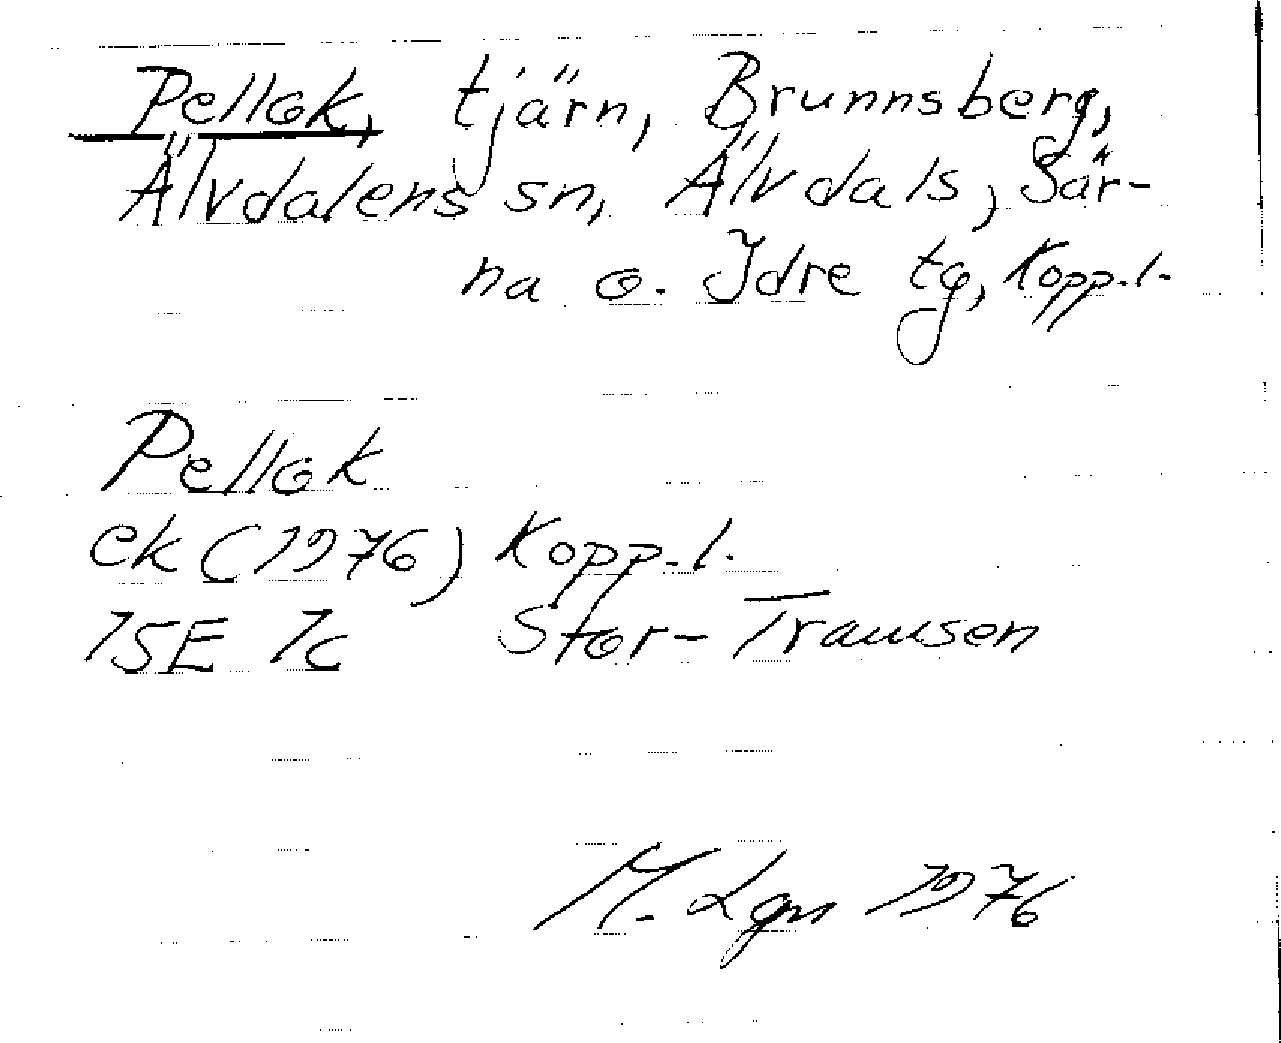 Pellok, tjärn, Brunnsberg,
Älvdalens sn, Älvdals, Sär-
na o. Idre tg, Kopp.l.
Pellok
ek (1976) Kopp.l.
15E 1c Stor-Tramsen
M. Lgn 1976